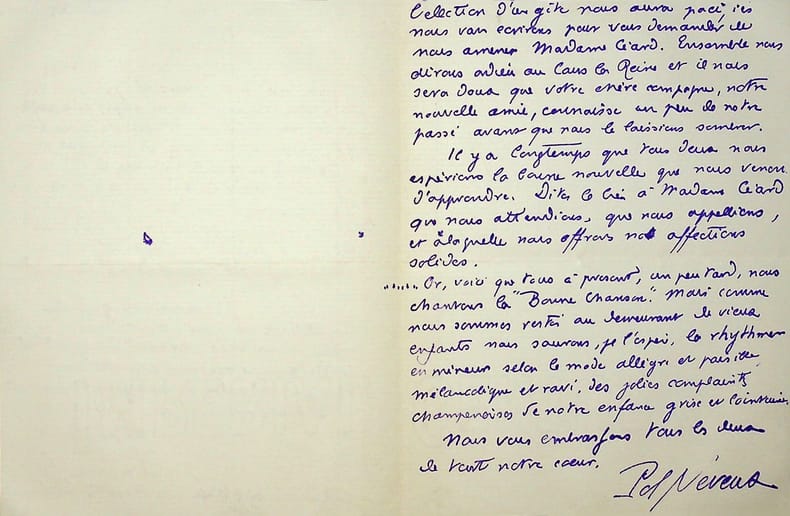 l'élection d'un gîte nous aura pacifiés
nous vous écrirons pour vous demander de
nous amener Madame Céard. Ensemble nous
dirons adieu au Cours la Reine et il nous
sera doux que votre chère compagne, notre
nouvelle amie, connaisse un peu de notre
passé avant que nous le laissions sombrer.
Il y a longtemps que tous deux nous
espérions la bonne nouvelle que nous venons
d'apprendre. Dites le bien à Madame Céard
que nous attendions, que nous appellions,
et à laquelle nous offrons nos affections
solides.
..... Or, voici que tous à présent, un peu tard, nous
chantons la "Bonne Chanson". Mais comme
nous sommes restés au demeurant de vieux
enfants nous saurons, je l'espère, la rhythmer
en mineur selon le mode allègre et paisible
mélancolique et ravi, des jolies complaintes
champenoises de notre enfance grise et lointaine.
Nous vous embrassons tous les deux
de tout notre coeur.
Pol Neveux